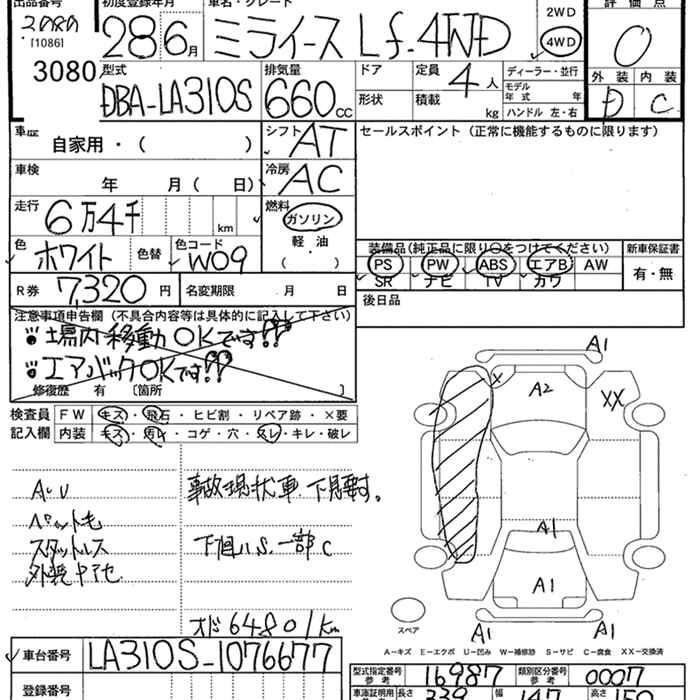 出品番号 初度登録年月 車名・グレード 評価点
3080
[1086]
28 6月 ミライース Lf. 4WD 2WD 4WD 0
3080 型式 DBA-LA310S 排気量 660cc
ドア 定員 4人 ディーラー・並行
モデル年式 年
形状 積載 kg ハンドル 左・右
外装 内装
D C
車歴 自家用・( )
シフト AT
セールスポイント(正常に機能するものに限ります)
車検 年 月( 日)
冷房 AC
走行 6万4千 km
燃料 ガソリン
軽油
( )
色 ホワイト 色替 色コード W09
装備品(純正品に限り○をつけてください) 新車保証書
PS PW ABS エアB AW 有・無
SR ナビ TV カワ
R券 7,320円 名変期限 月 日
後日品
注意事項申告欄(不具合内容等は具体的に記入して下さい)
場内移動OKです!!
エアバックOKです!!
修復歴 有 〔箇所 〕
検査員 FW キズ・飛石・ヒビ割・リペア跡・×要
記入欄 内装 キズ・汚れ・コゲ・穴・スレ・キレ・破レ
A1
X
A2
XX
A・U
ペット毛
スタッドレス
外装キズアセ
事故現状車.下見要す。
下廻りS.一部C
オド 64801km
A1
A1
スペア
A1
A1
A-キズ E-エクボ U-凹み W-補修跡 S-サビ C-腐食 XX-交換済
車台番号 LA310S-1076677
登録番号
型式指定番号 参考 16987 類別区分番号 参考 0007
車庫証明用 参考 長さ 339 幅 147 高さ 150